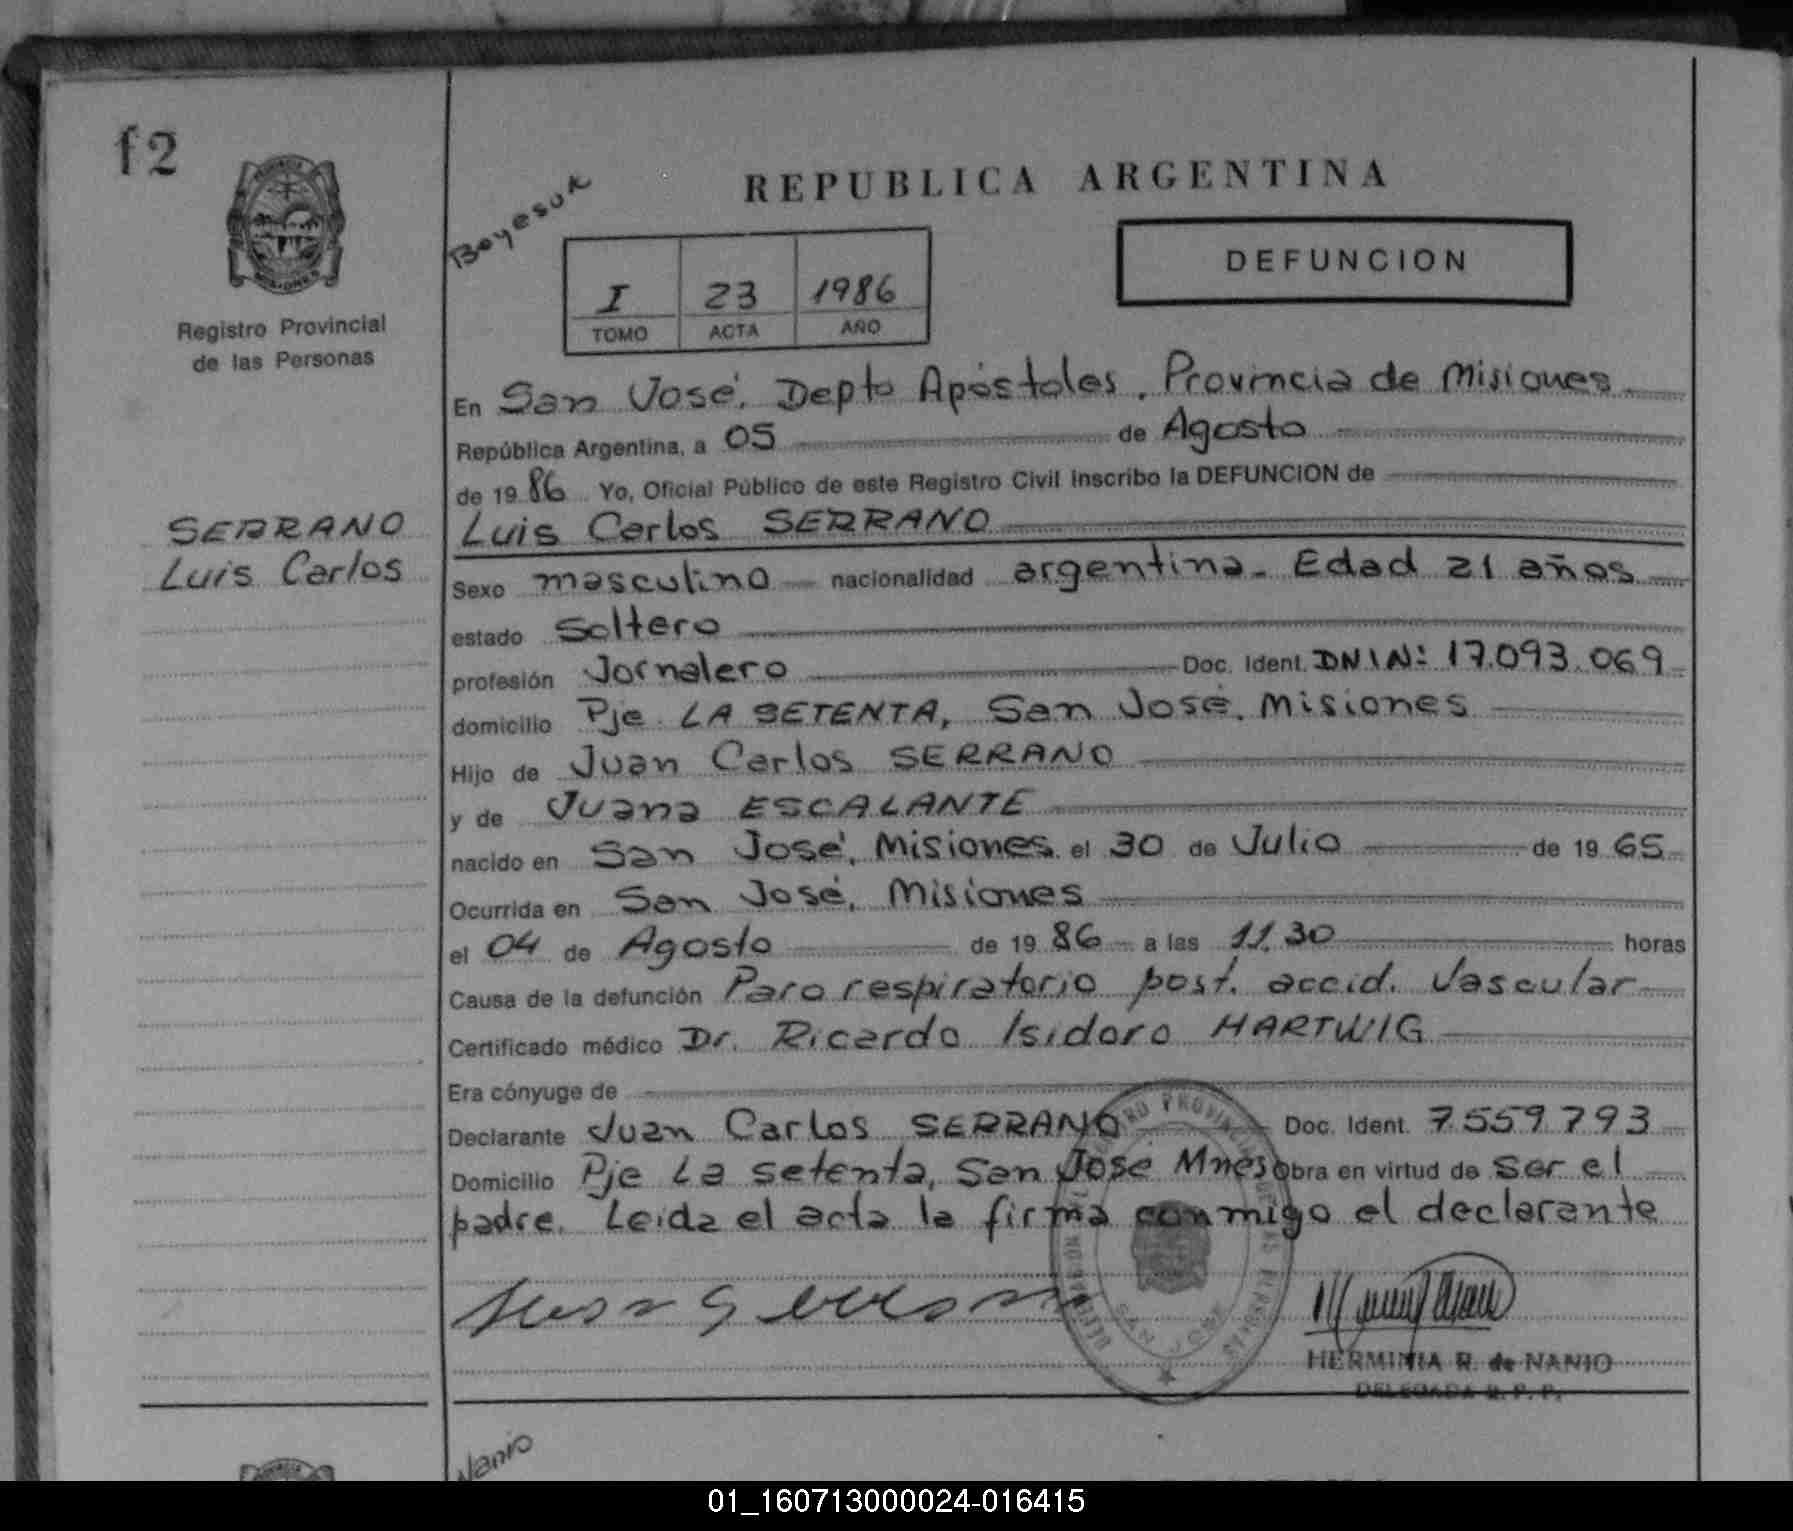 f2
Registro Provincial
de las Personas
SERRANO
Luis Carlos
Boyesuk
REPUBLICA ARGENTINA
DEFUNCION
I 23 1986
TOMO ACTA AÑO
En San José, Depto Apóstoles, Provincia de Misiones
República Argentina, a 05 de Agosto
de 1986 Yo, Oficial Público de este Registro Civil inscribo la DEFUNCION de
Luis Carlos SERRANO
Sexo masculino nacionalidad argentina. Edad 21 años
estado Soltero
profesión Jornalero Doc. Ident. DNIN: 17.093.069
domicilio Pje LA SETENTA, San José, Misiones
Hijo de Juan Carlos SERRANO
y de Juana ESCALANTE
nacido en San José, Misiones el 30 de Julio de 1965
Ocurrida en San José, Misiones
el 04 de Agosto de 1986 a las 11.30 horas
Causa de la defunción Paro respiratorio post. accid. Vascular
Certificado médico Dr. Ricardo Isidoro HARTWIG
Era cónyuge de
Declarante Juan Carlos SERRANO Doc. Ident. 7.559.793
Domicilio Pje La setenta, San Jose Mnes Obra en virtud de ser el
padre. Leida el acta la firma conmigo el declarante
HERMINIA R. de NANIO
DELEGADA R. P. P.
Nanio
01_160713000024-016415